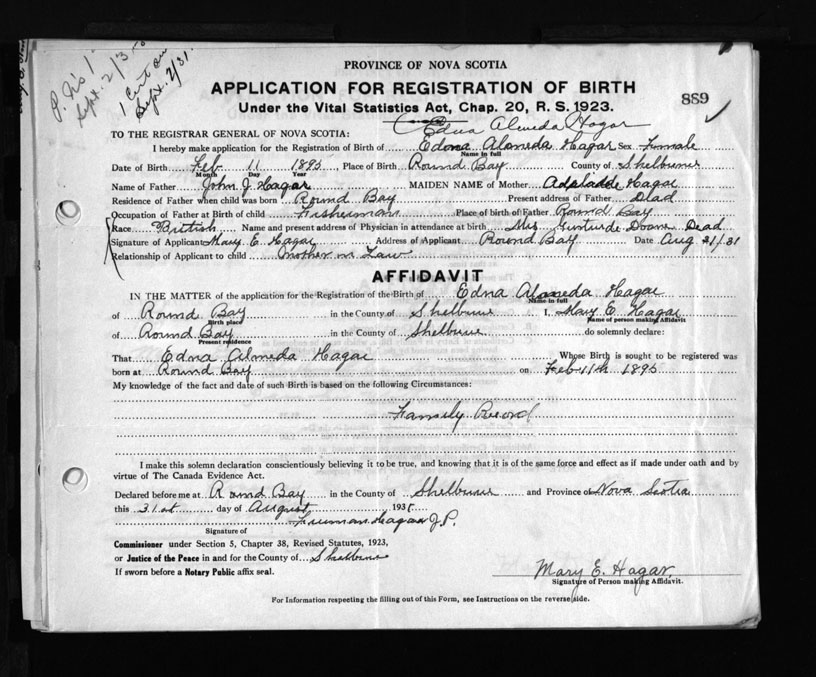 P. No 1
Sept. 2/31
1 Cert on
Sept. 2/31.
PROVINCE OF NOVA SCOTIA
APPLICATION FOR REGISTRATION OF BIRTH
889
Under the Vital Statistics Act, Chap. 20, R. S. 1923.
Edna Almeda Hagar
TO THE REGISTRAR GENERAL OF NOVA SCOTIA:
I hereby make application for the Registration of Birth of Edna Almeda Hagar Sex Female
Name in full
Date of Birth Feb 11 1895 Place of Birth Round Bay County of Shelburne
Month Day Year
Name of Father John J. Hagar MAIDEN NAME of Mother Hagar
Residence of Father when child was born Round Bay Present address of Father Dead
Occupation of Father at Birth of child Fisherman Place of birth of Father Round Bay
Race British Name and present address of Physician in attendance at birth Mrs Gertrude Doane Dead
Signature of Applicant Mary E. Hagar Address of Applicant Round Bay Date Aug 31/31
Relationship of Applicant to child Mother in Law
AFFIDAVIT
IN THE MATTER of the application for the Registration of the Birth of Edna Almeda Hagar
Name in full
of Round Bay in the County of Shelburne I, Mary E. Hagar
Birth place Name of person making Affidavit
of Round Bay in the County of Shelburne do solemnly declare:
Present residence
That Edna Almeda Hagar Whose Birth is sought to be registered was
born at Round Bay on Feb 11th 1895
My knowledge of the fact and date of such Birth is based on the following Circumstances:
Family Record
I make this solemn declaration conscientiously believing it to be true, and knowing that it is of the same force and effect as if made under oath and by
virtue of The Canada Evidence Act.
Declared before me at Round Bay in the County of Shelburne and Province of Nova Scotia
this 31st day of August 193
Freeman Hagar J.P.
Signature of
Commissioner under Section 5, Chapter 38, Revised Statutes, 1923,
or Justice of the Peace in and for the County of Shelburne
If sworn before a Notary Public affix seal.
Mary E. Hagar.
Signature of Person making Affidavit.
For Information respecting the filling out of this Form, see Instructions on the reverse side.